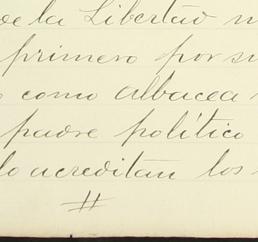 de la Libertad
primero por su
como albacea
padre político
lo acreditan los
#